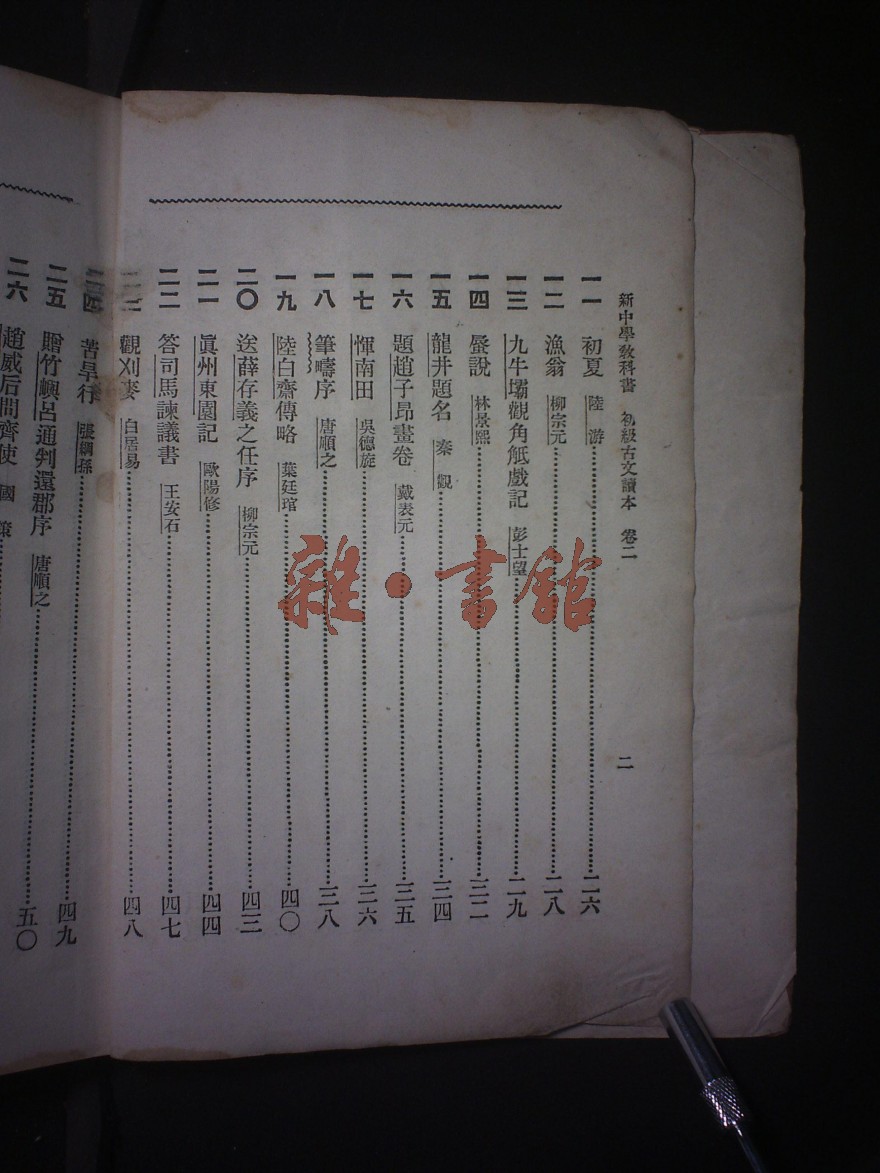 新中學教科書 初級古文讀本 卷二 二
一一 初夏 陸游 二六
一二 漁翁 柳宗元 二八
一三 九牛壩觀角觝戲記 彭士望 二九
一四 蜃說 林景熙 三二
一五 龍井題名 秦觀 三四
一六 題趙子昂畫卷 戴表元 三五
一七 惲南田 吳德旋 三六
一八 筆疇序 唐順之 三八
一九 陸白齋傳略 葉廷琯 四〇
二〇 送薛存義之任序 柳宗元 四三
二一 眞州東園記 歐陽修 四四
二二 答司馬諫議書 王安石 四七
二三 觀刈麥 白居易 四八
二四 苦旱行 張綱孫
二五 贈竹嶼呂通判還郡序 唐順之 四九
二六 趙威后問齊使 國策 五〇
雜·書館